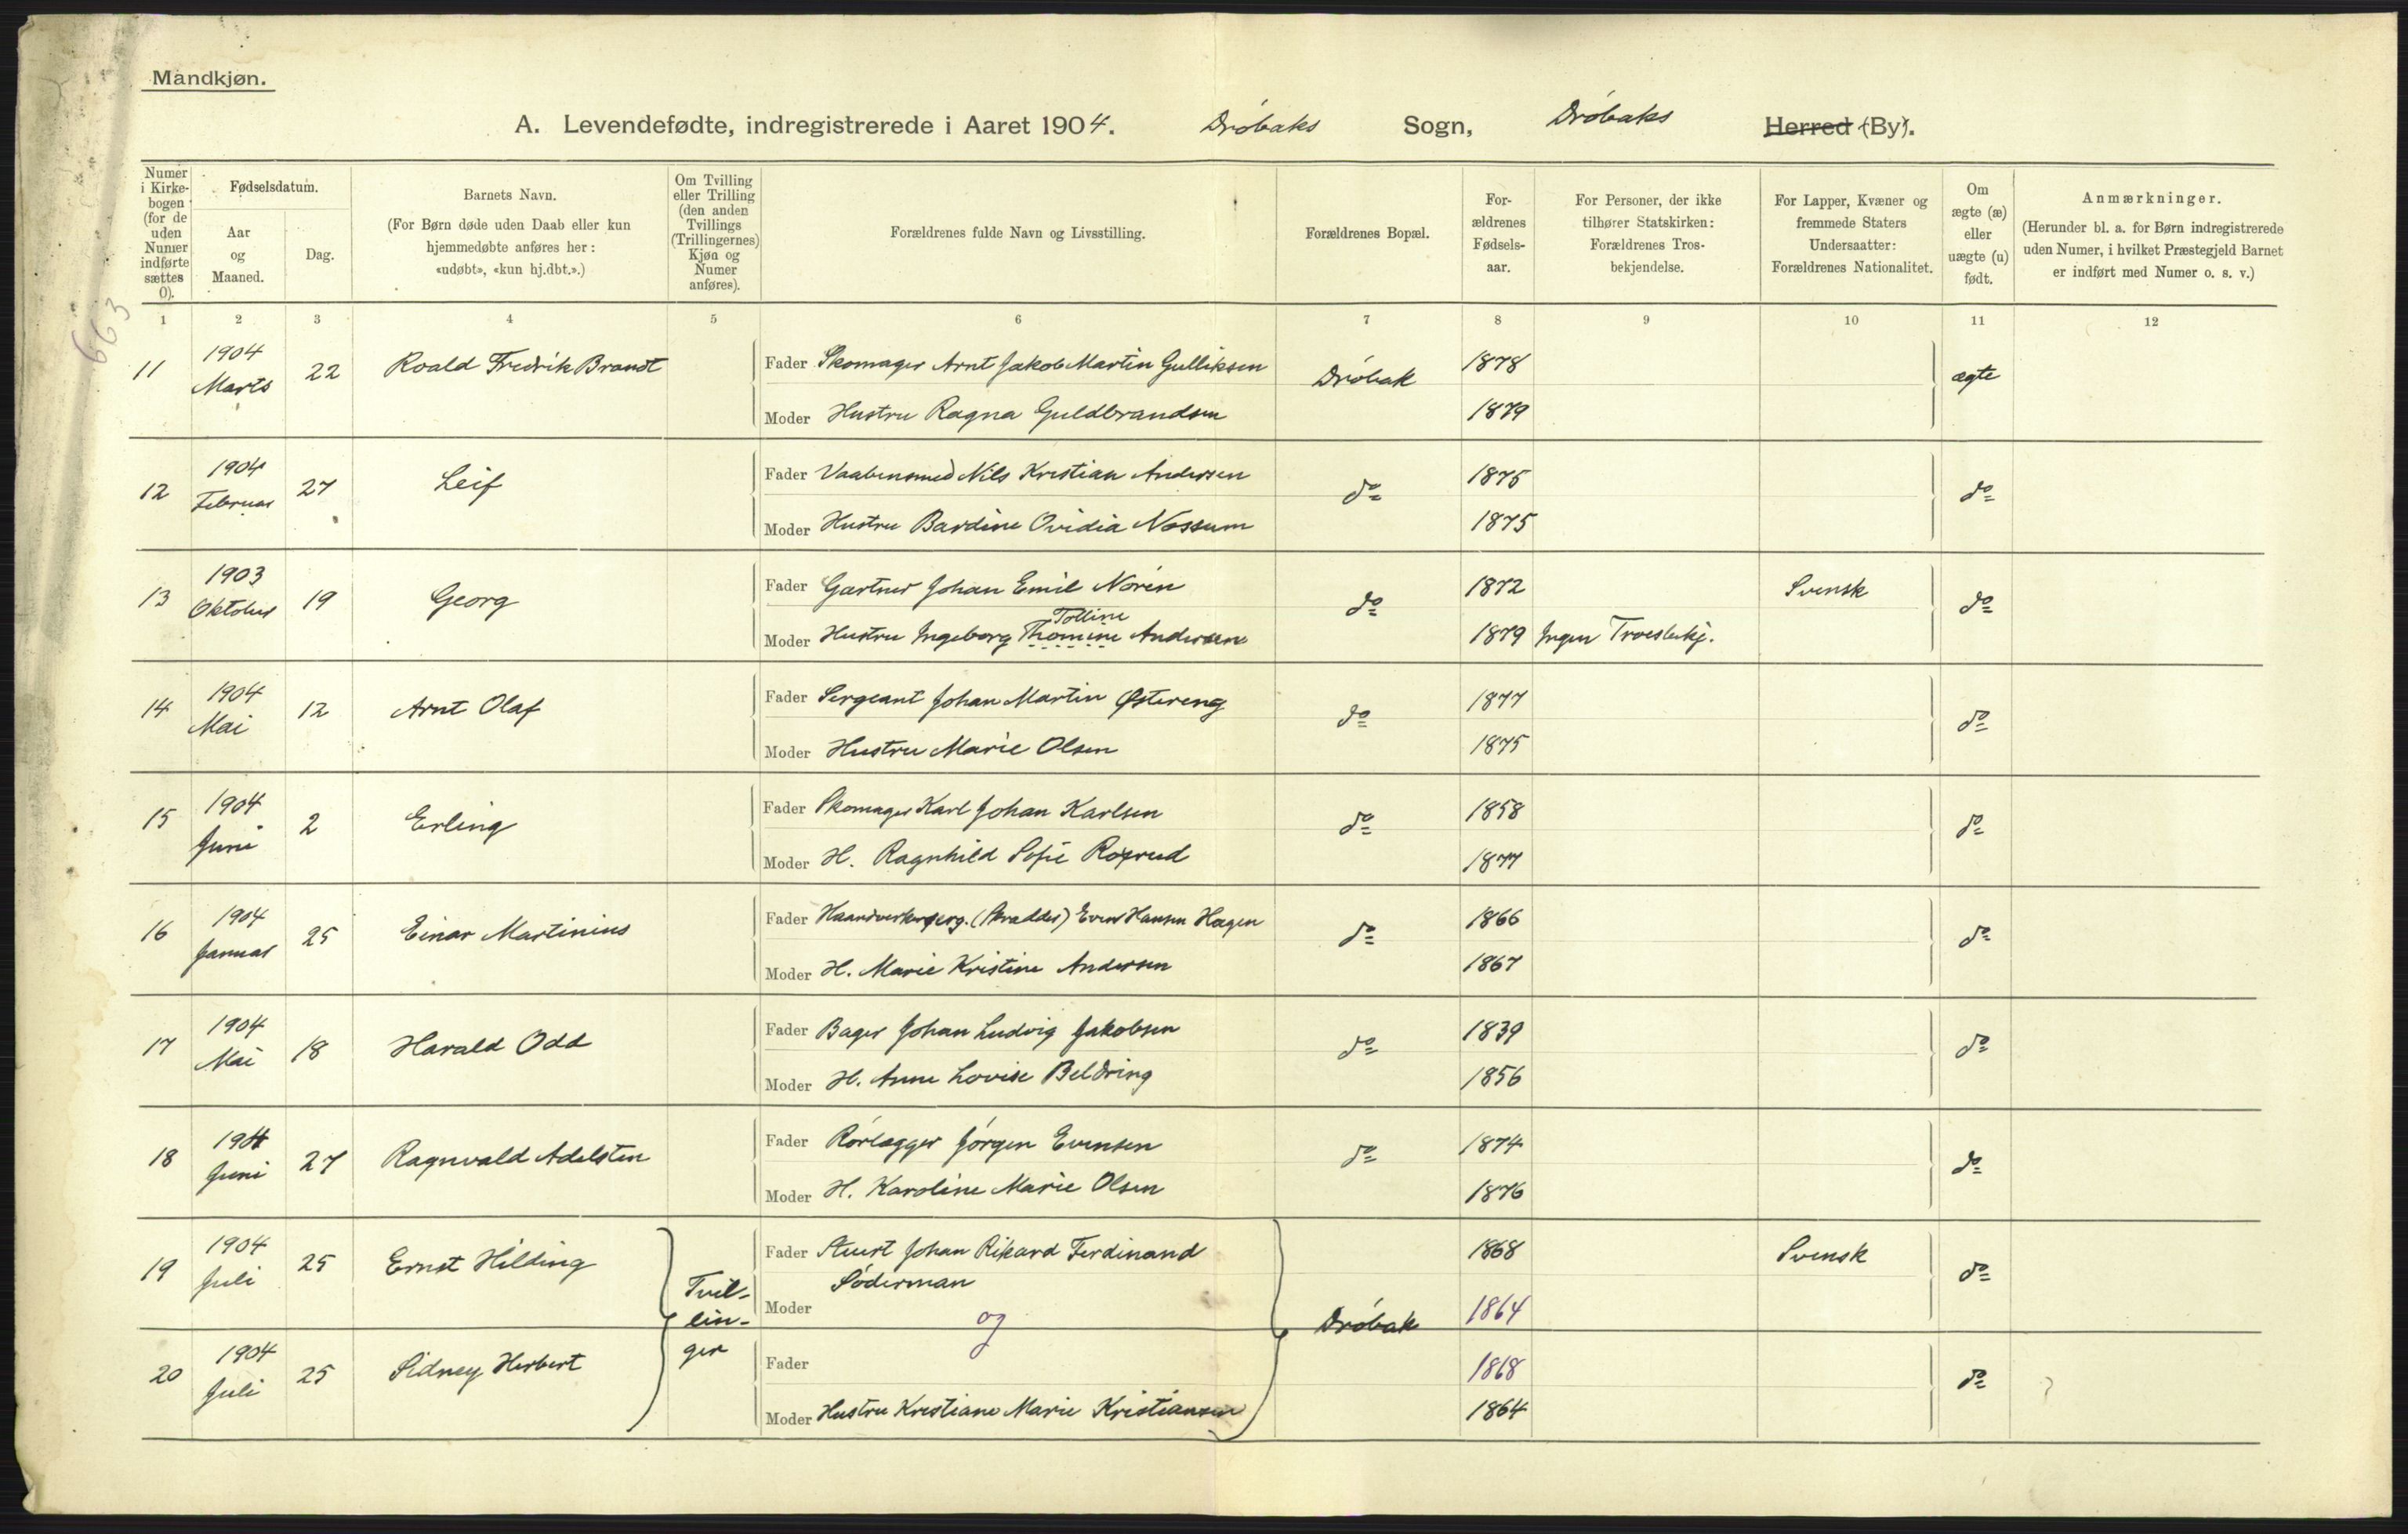 Mandkjøn.
A. Levendefødte, indregistrerede i Aaret 1904. Drøbaks Sogn, Drøbaks Herred (By).
663
Numer i Kirkebogen (for de uden Numer indførte sættes 0).
Fødselsdatum.
Aar og Maaned.
Dag.
Barnets Navn.
(For Børn døde uden Daab eller kun hjemmedøbte anføres her: «udøbt», «kun hj.dbt.».)
Om Tvilling eller Trilling (den anden Tvillings (Trillingernes) Kjøn og Numer anføres).
Forældrenes fulde Navn og Livsstilling.
Forældrenes Bopæl.
Forældrenes Fødselsaar.
For Personer, der ikke tilhører Statskirken: Forældrenes Trosbekjendelse.
For Lapper, Kvæner og fremmede Staters Undersaatter: Forældrenes Nationalitet.
Om ægte (æ) eller uægte (u) født.
Anmærkninger.
(Herunder bl. a. for Børn indregistrerede uden Numer, i hvilket Præstegjeld Barnet er indført med Numer o. s. v.)
1 2 3 4 5 6 7 8 9 10 11 12
11 1904 Marts 22 Roald Fredrik Brandt Fader Skomager Arnt Jakob Martin Gulliksen Drøbak 1878 ægte
Moder Hustru Ragna Guldbrandsen 1879
12 1904 Februar 27 Leif Fader Vaabensmed Nils Kristian Andersen do 1875 do
Moder Hustru Bardine Ovidia Næssum 1875
13 1903 Oktober 19 Georg Fader Gartner Johan Emil Norén do 1872 Svensk do
Tolline
Moder Hustru Ingeborg Thomine Andersen 1879 Ingen Troesbekj.
14 1904 Mai 12 Arnt Olaf Fader Sergeant Johan Martin Østereng do 1877 do
Moder Hustru Marie Olsen 1875
15 1904 Juni 2 Erling Fader Skomager Karl Johan Karlsen do 1858 do
Moder H. Ragnhild Sofie 1877
16 1904 Januar 25 Einar Martinius Fader (Skrædder) Even Hansen Hagen do 1866 do
Moder H. Marie Kristine Andersen 1867
17 1904 Mai 18 Harald Odd Fader Bager Johan Ludvig Jakobsen do 1839 do
Moder H. Anne Lovise Beldring 1856
18 1904 Juni 27 Ragnvald Adelsten Fader Rørlægger Jørgen Evensen do 1874 do
Moder H. Karoline Marie Olsen 1876
19 1904 Juli 25 Ernst Hilding Tvil- Fader Stuert Johan Rikard Ferdinand 1868 Svensk do
Söderman
lin- Moder og Drøbak 1864
20 1904 Juli 25 Sidney Herbert ger Fader 1868 do
Moder Hustru Kristiane Marie Kristiansen 1864